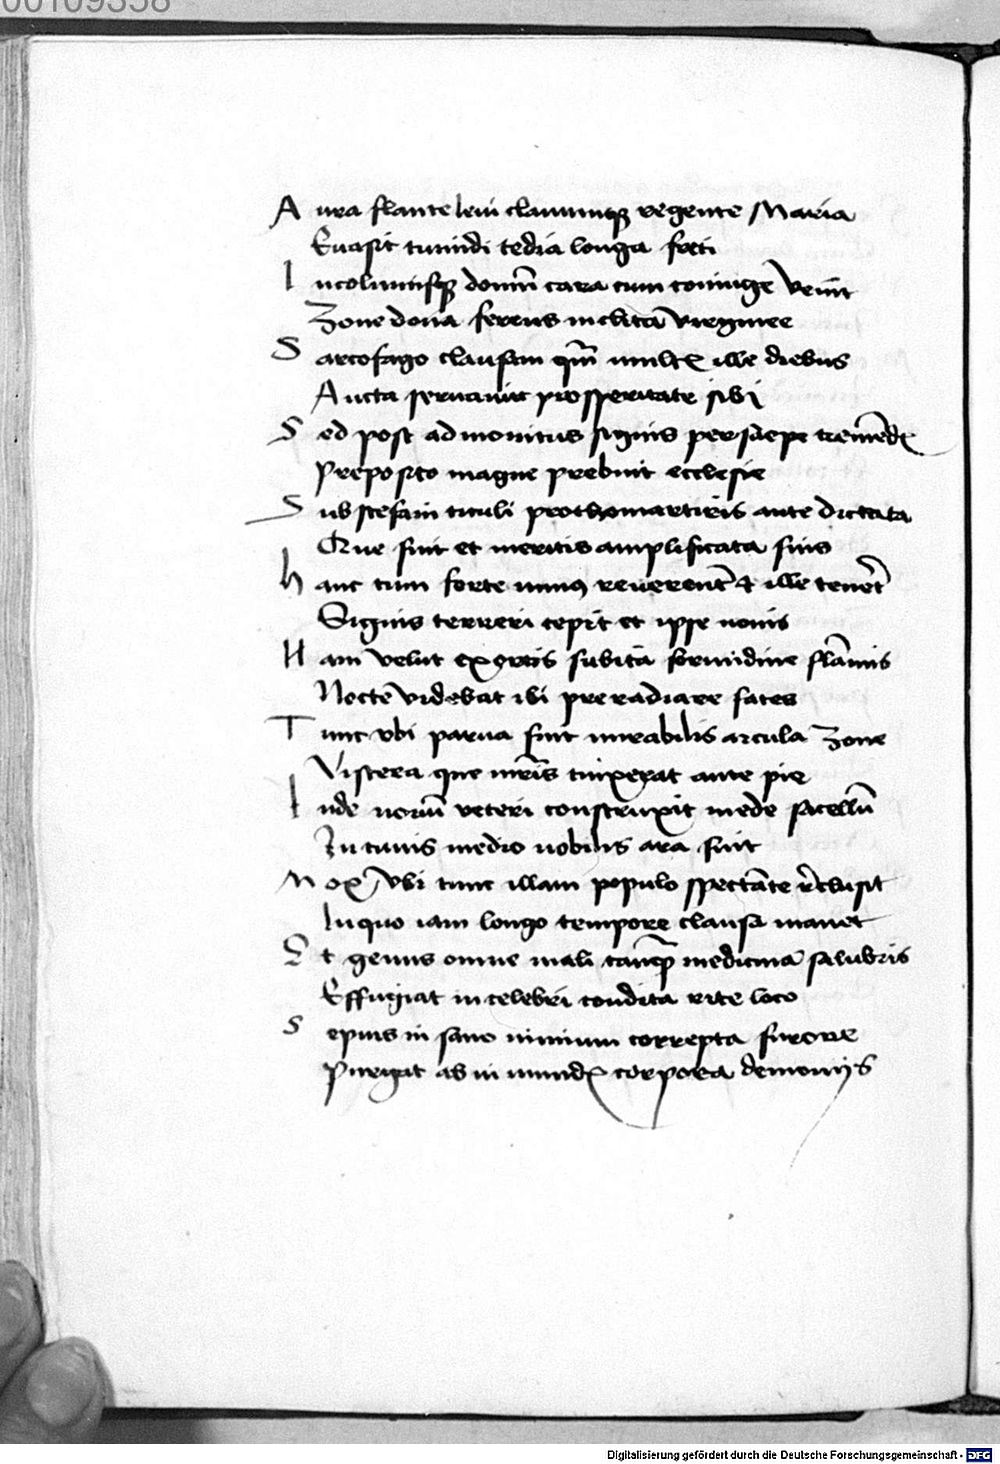 00109358
Aura flante leui clauumqꝫ regente Maria
Euasit tumidi tedia longa freti
Incolumisqꝫ domū cara cum coniuge venit
Zone dona ferens inclita virginee
Sarcofago clausam ille diebus
Aucta seruauit prosperitate sibi
Sed post admonitus signis persaepe tremēdꝭ
Preposito magne prebuit ecclesie
Sub stefani tituli prothomartiris ante dictata
Que fuit et meritis amplificata suis
hanc tum forte minus ille tenerꝫ
Signis terreri cepit et ipse nouis
Nam velut exortis subita formidine flāmis
Nocte videbat ibi preradiare faces
Tunc vbi parua fuit mirabilis arcula Zone
Viscera que mrīs cinxerat ante pie
Inde nouū veteri construxit in ede sacellū
In cuius medio nobilis ara fuit
Mox vbi tunc illam populo spectāte rēclusit
In quo iam longo tempore clausa manet
Et genus omne mali medicina salubris
Effugiat in celebri condita rite loco
Sepius in sano nimium correpta furore
Purgat ab in mundꝭ corpora demonijs
Digitalisierung gefördert durch die Deutsche Forschungsgemeinschaft - DFG